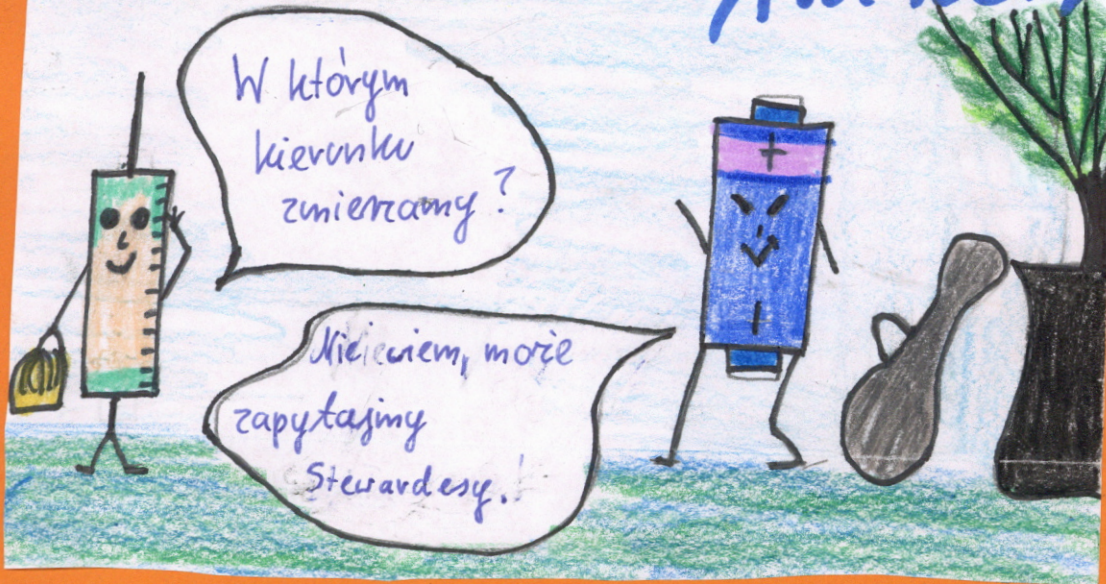 W którym
kierunku
zmierzamy?
Nie wiem, może
zapytajmy
Stewardesy.!
+
-